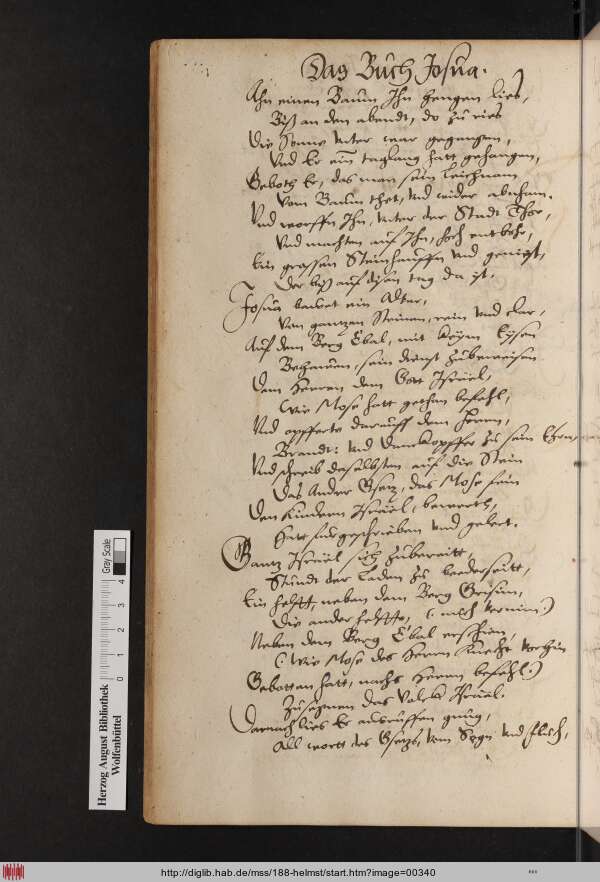 Das Buch Josua.
Ahn einen Baum Ihn hengen lies,
Biß an den abendt, do zu ries
Die Sonne unter war gegangen,
Vnd Er ein taglang hatt gehangen,
Geboth Er, das man sein leichnam
Vom Baum thet, vnd wider abnham.
Vnd worffn Ihn, vnter der Stadt Thor,
Vnd machten auf Ihn, hoch entbohr,
Ein grossen Steinhauffn vnd gewiß,
Der biß auf disen tag da ist.
Josua bawet ein Altar,
Von gantzen Steinen, rein vnd klar,
Auf dem Berg Ebal, mit keym Eysen
Behawen, sein dienst zubeweisen
Dem Herren dem Gott Israel,
Wie Mose hatt gethan befehl,
Vnd opfferte darauff dem Herren,
Brandt: vnd Danckopffer zu sein Ehren
Vnd schreib daselbsten auf die Stein
Das Ander Gsetz, das Mose fein
Den Kindern Israel, bewerth,
Hatt furgeschrieben vnd gelert.
Gantz Israel sich zubereitt,
Stundt der Laden zu beederseitt,
Ein helfft, neben dem Berg Grisim,
Die ander helffte, (: mich vernim:)
Neben dem Berg Ebal erschien,
(: Wie Mose des Herren Knecht vorhin
Gebotten hatt, nachs Herren befehl:)
Zusegnen das Volck Israel.
Darnach lies Er ausruffen gnug,
All wortt des Gsetzs, vom Segn vnd fluch,
Herzog August Bibliothek
Wolfenbüttel
0 1 2 3 4
Gray Scale
http://diglib.hab.de/mss/188-helmst/start.htm?image=00340